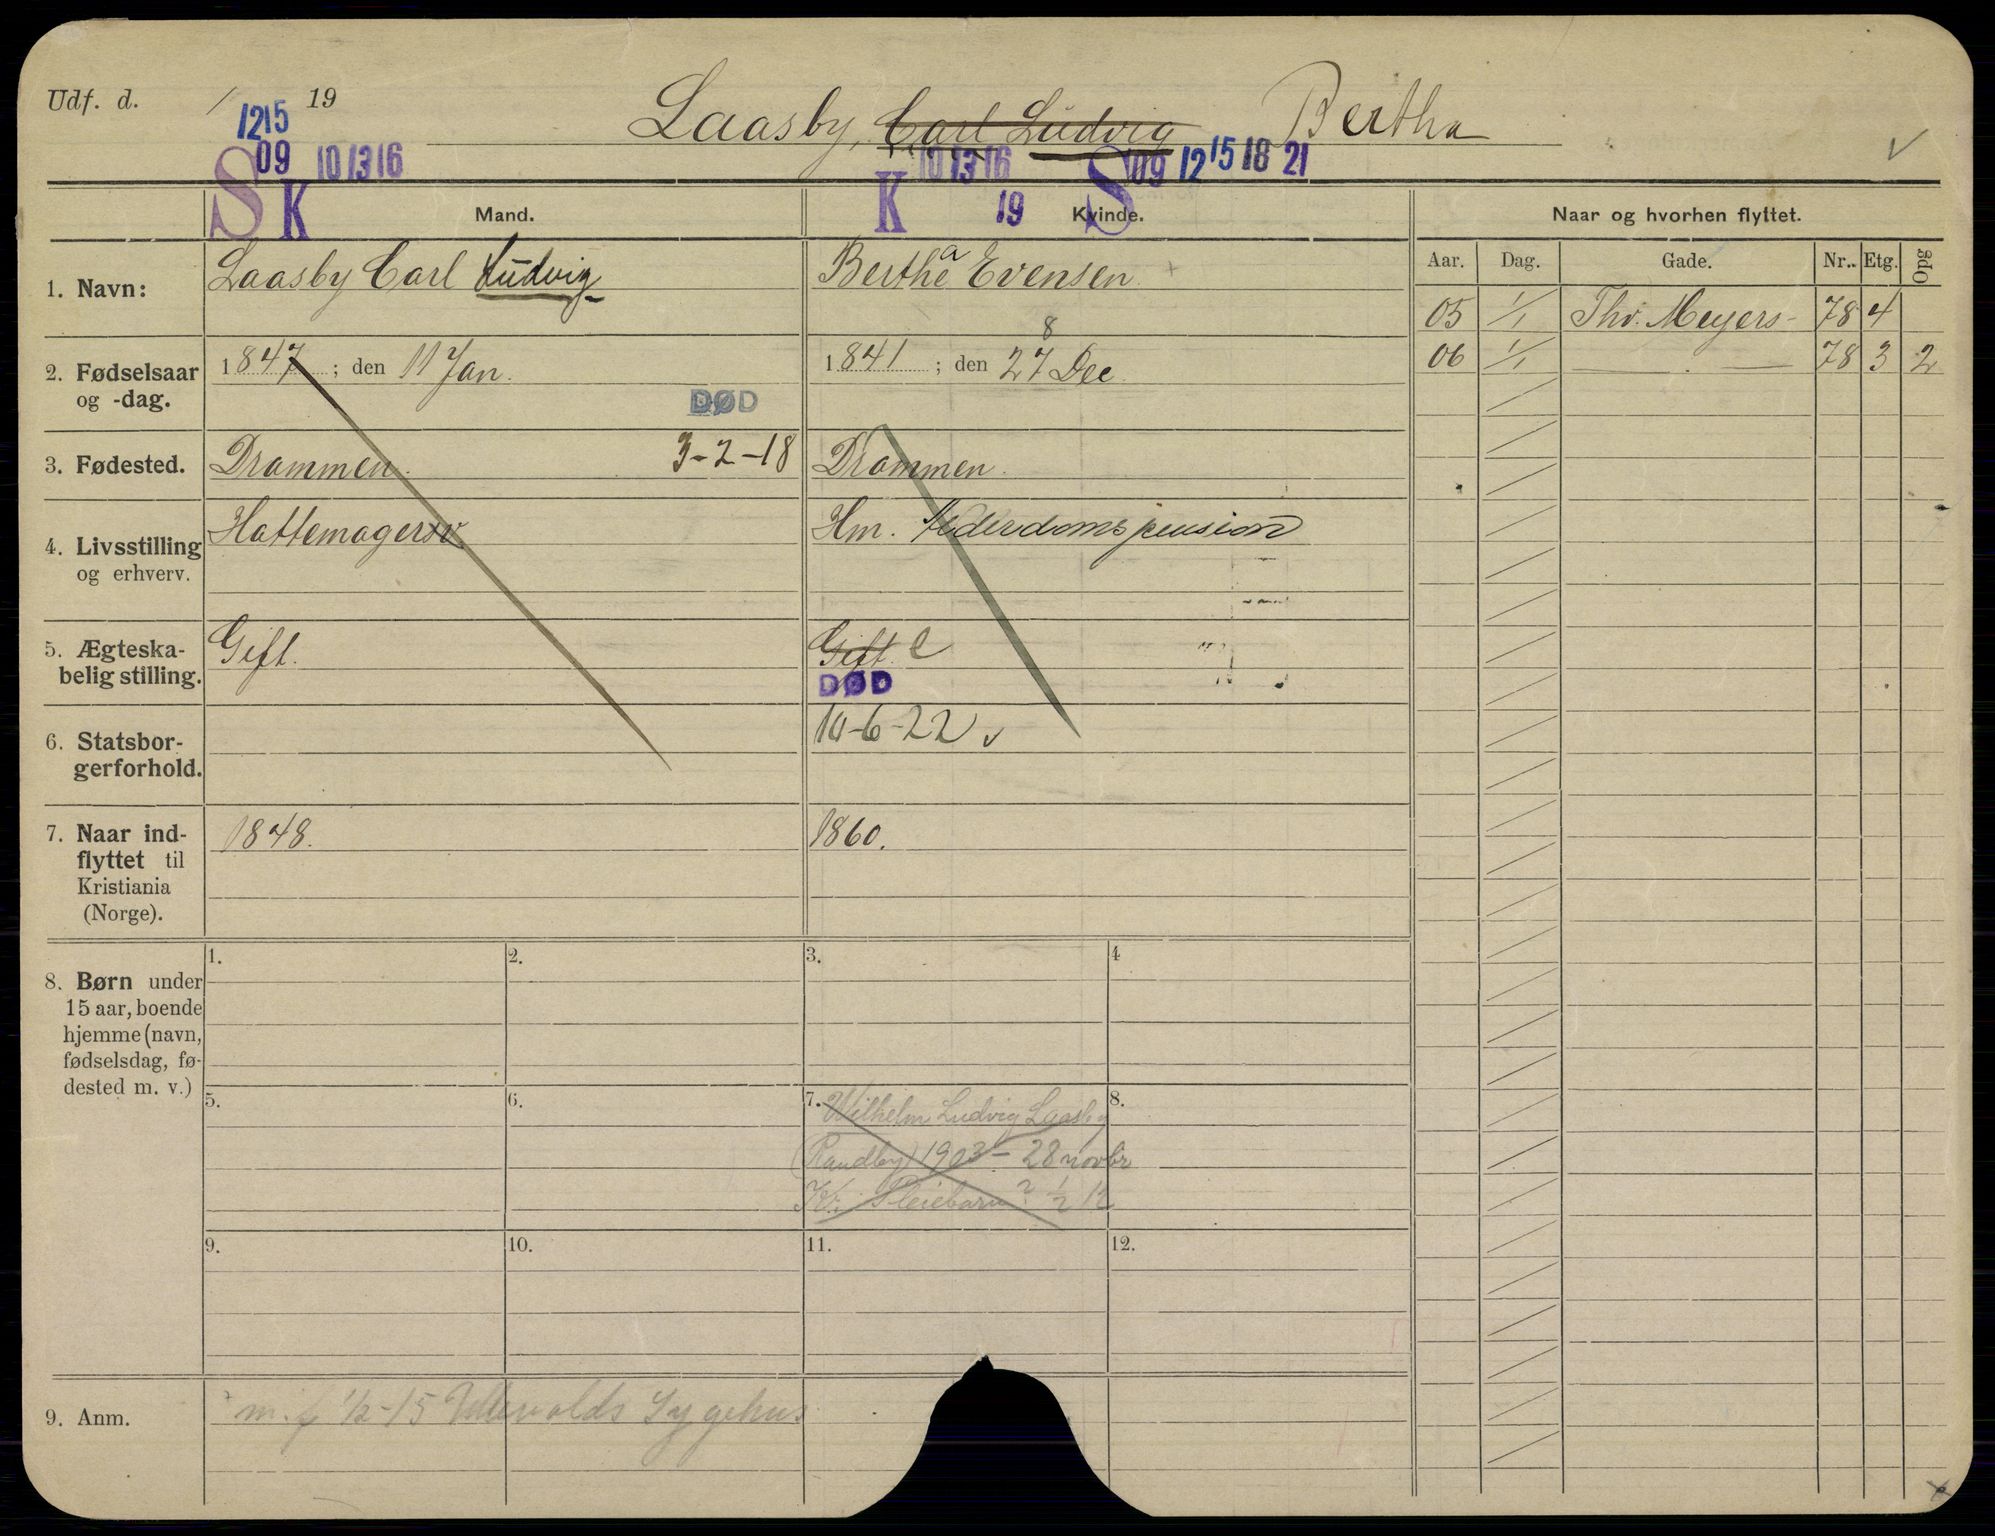 Udf. d. / 19
Laasby, Carl Ludvig Bertha
12 15
S 09 K 10 13 16
K 10 13 16 19 S 09 12 15 18 21
Mand. Kvinde. Naar og hvorhen flyttet.
Aar. Dag. Gade. Nr. Etg. Opg
1. Navn: Laasby Carl Ludvig Berthe a Evensen
05 1/1 Thv. Meyers- 78 4
06 1/1 — . — 78 3 2
2. Fødselsaar og -dag. 1847; den 11 Jan. 1841; den 27 8 Dec.
DØD
3. Fødested. Drammen. 3-2-18 Drammen.
4. Livsstilling og erhverv. Hattemagersv. Hm. Alderdomspension
5. Ægteska-
belig stilling. Gift. Gift. e
DØD
6. Statsbor-
gerforhold. 10-6-22 v
7. Naar ind-
flyttet til
Kristiania
(Norge). 1848. 1860.
8. Børn under
15 aar, boende
hjemme (navn,
fødselsdag, fø-
dested m. v.)
1. 2. 3. 4
5. 6. 7. Wilhelm Ludvig Laasby 8.
(Randby) 1903 - 28 novbr
Kr. Pleiebarn? 1/2 12
9. 10. 11. 12.
9. Anm. m. f 1/2-15 Ullevolds Sygehus